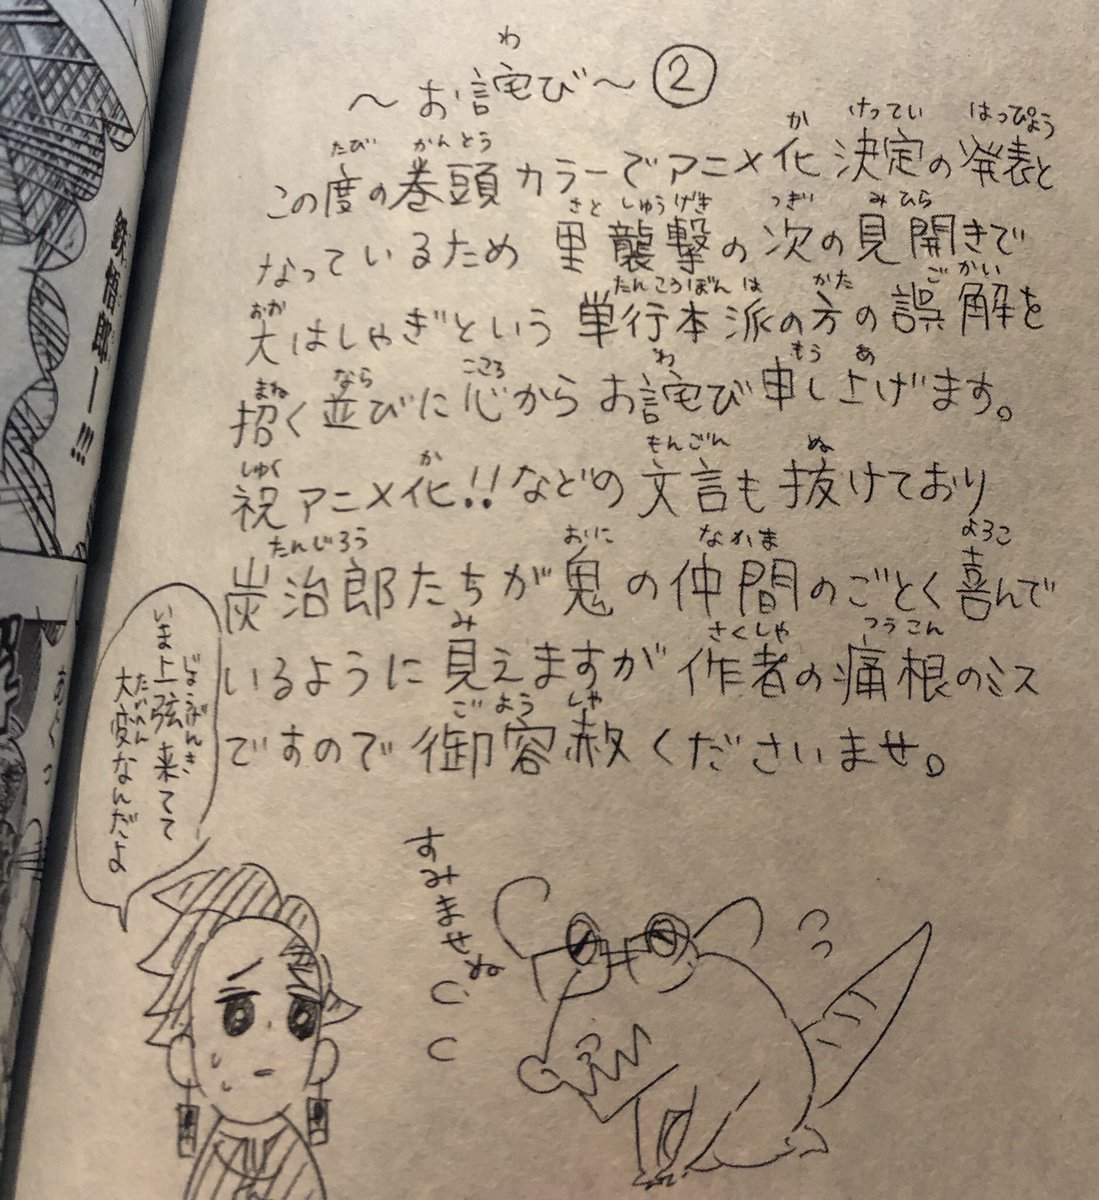 〜お詫び〜②
この度の巻頭カラーでアニメ化決定の発表と
なっているため里襲撃の次の見開きで
大はしゃぎという単行本派の方の誤解を
招く並びに心からお詫び申し上げます。
祝アニメ化!!などの文言も抜けており
炭治郎たちが鬼の仲間のごとく喜んで
いるように見えますが作者の痛根のミス
ですので御容赦くださいませ。
いま上弦来てて
大変なんだよ
すみませぬ